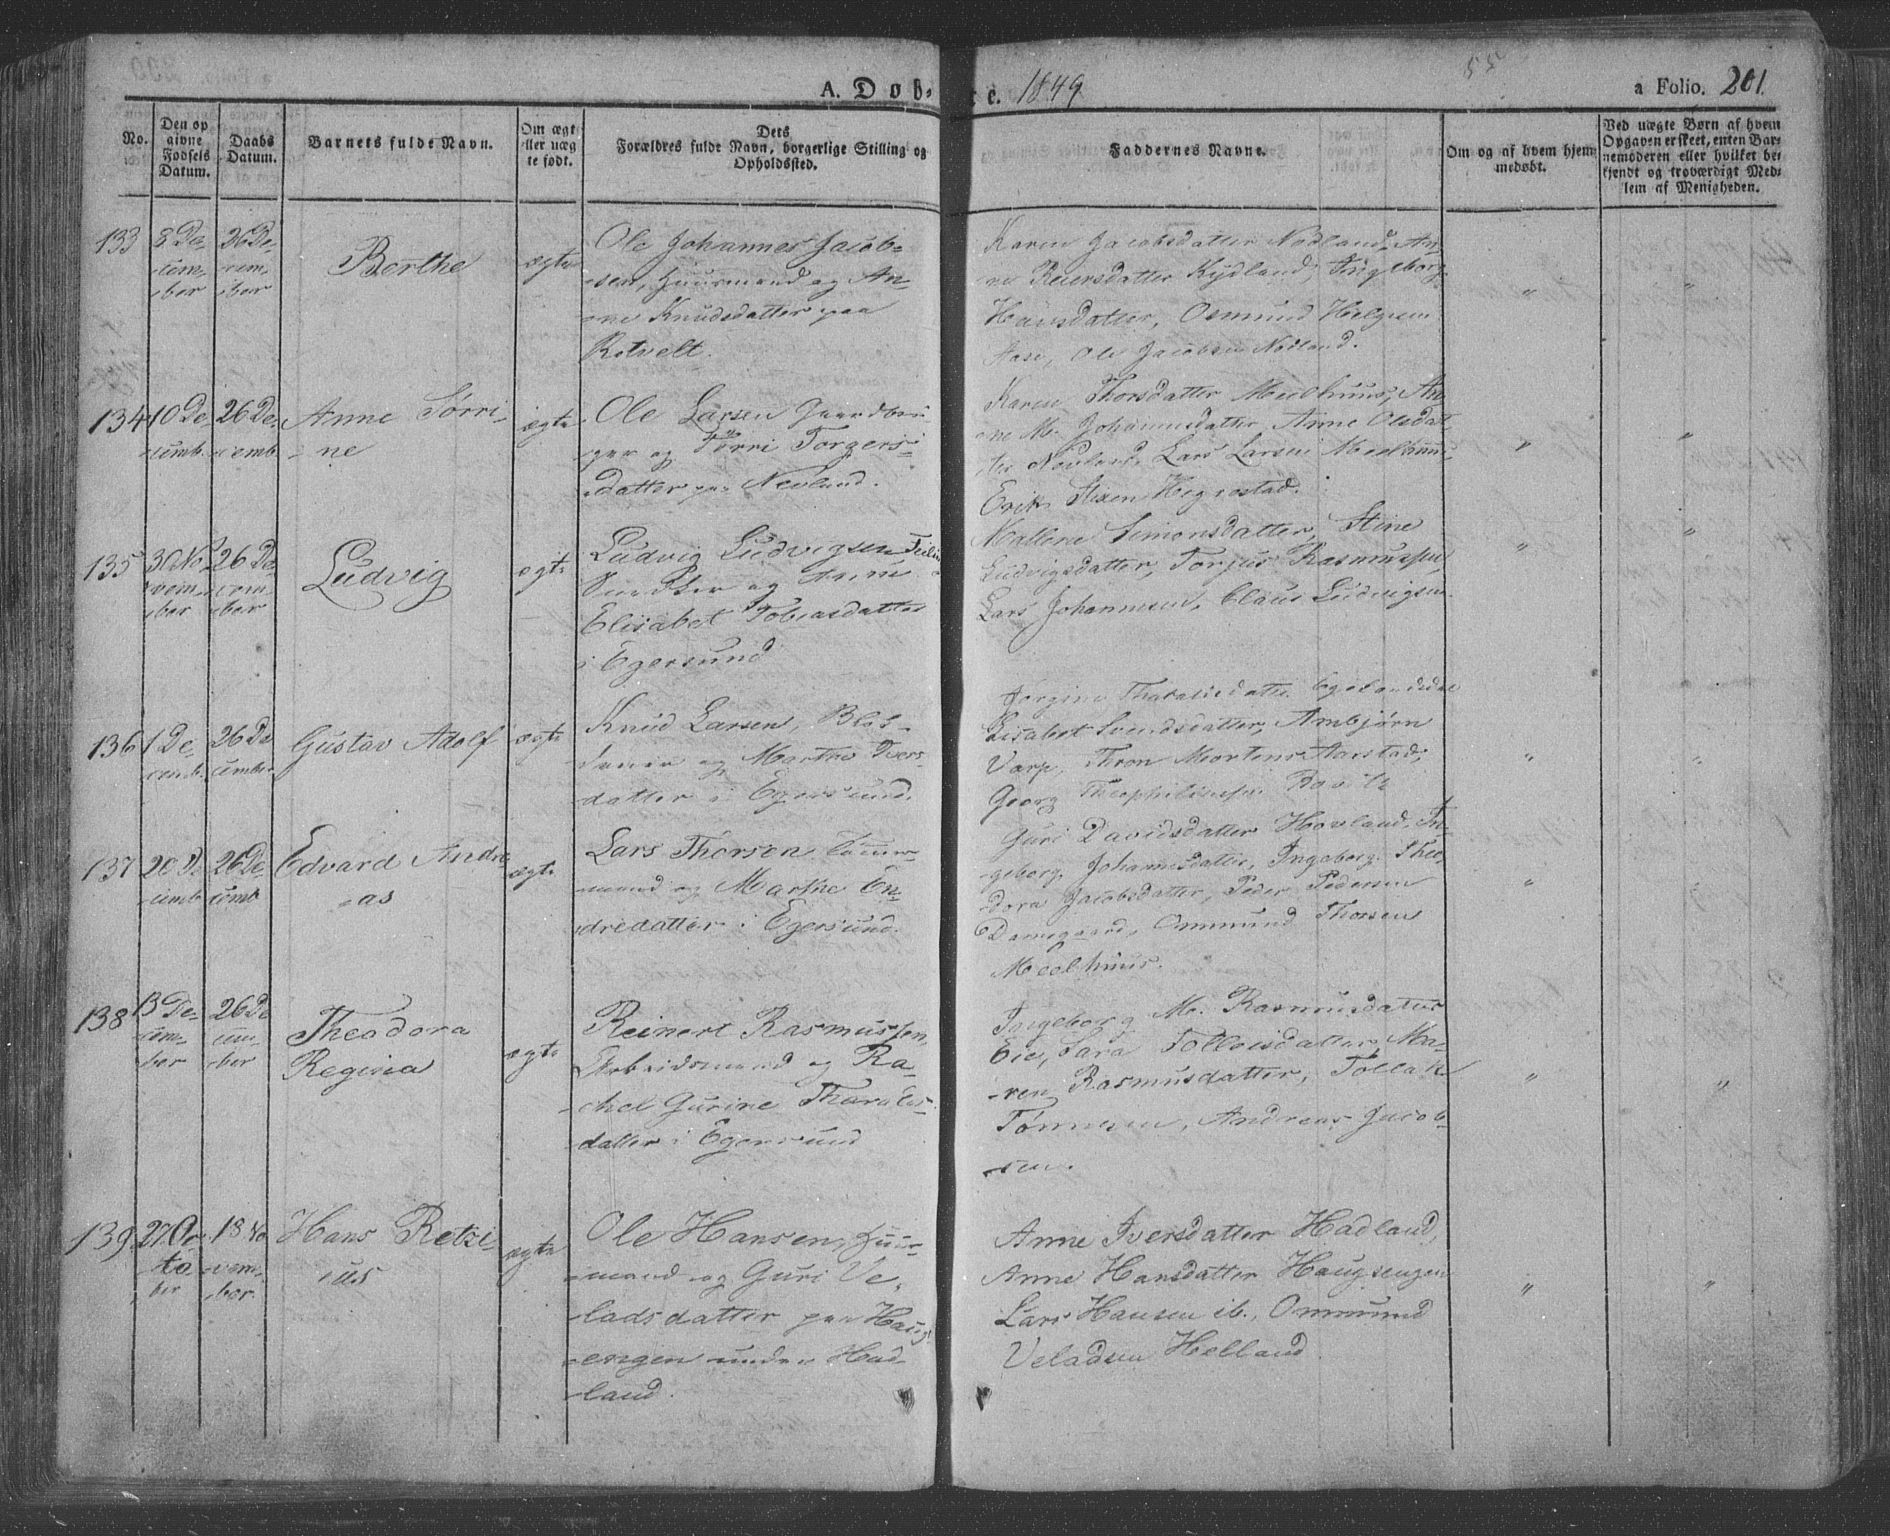 A. Døb- te. 1849 55 a Folio. 201.
No.
Den op
givne
Fødsels
Datum.
Daabs
Datum.
Barnets fulde Navn.
Om ægt
eller uæg
te født.
Dets
Forældres fulde Navn, borgerlige Stilling og
Opholdssted.
Faddernes Navne.
Om og af hvem hjem
medøbt.
Ved uægte Børn af hvem
Opgaven er skeet, enten Bar
nemoderen eller hvilket be
kjendt og troværdigt Med
lem af Menigheden.
133
8 De-
cem-
ber
26 De-
cem-
ber
Berthe
ægte
Ole Johannes Jacob-
sen, Huusmand og An-
ne Knudsdatter paa
Rotvelt.
Karen Jacobsdatter Nodland, An-
ne Reiersdatter Kydland, Ingeborg
Hansdatter, Osmund Helgesen
Aase, Ole Jacobsen Nodland.
" "
134
10 De-
cemb.
26 De-
cemb
Anne Sørri-
ne
ægte
Ole Larsen Gaardbru-
ger og Sørri Torgers-
datter paa Nevland.
Karen Thorsdatter Meelhuus, An-
ne M. Johannesdatter, Anne Olsdat-
ter Nevland, Lars Larsen Meelhuus,
Erik Hegrestad.
" "
135
30 No-
vem-
ber
26 De-
cem-
ber
Ludvig
ægte
Ludvig Ludvigsen
Snedker og Anne
Elisabet Tobiasdatter
i Egersund
Mallene Simonsdatter, Stine
Ludvigsdatter, Torjus Rasmussen,
Lars Johannesen, Claus Ludvigsen.
" "
136
1 De-
cemb.
26 De-
cember
Gustav Adolf
ægte
Knud Larsen,
og Marthe Ivers-
datter i Egersund.
Jorgine Egelandsdal
Lisabet Svendsdatter, Ambjørn
Varp, Thron Mortens Aarstad,
Georg Theophiliussen
" "
137
20 De-
cemb
26 De-
cemb
Edvard Andre-
as
ægte
Lars Thorsen
mand og Marthe En-
dredatter i Egersund.
Guri Davidsdatter Hovland, In-
geborg Johannesdatter, Ingeborg Theo-
dora Jacobsdatter, Peder Pedersen
Damsgaard, Ommund Thorsen
Meelhuus.
"
138
13 De-
cem-
ber
26 De-
cem-
ber
Theodora
Regina
ægte
Reinert Rasmussen,
Arbeidsmand og Ra-
chel Gurine Tharalds-
datter i Egersund
Ingeborg M. Rasmusdatter
Eie, Sara Tolleisdatter, Ma-
ren Rasmusdatter, Tollak
Tønnesen, Andreas Jacob-
sen.
" "
139
27 Oc-
to-
ber
18 No-
vem-
ber
Hans Retzi-
us
ægte
Ole Hansen, Huus-
mand og Guri Ve-
ladsdatter paa Haugs-
engen under Had-
land.
Anne Iversdatter Hadland,
Anne Hansdatter Haugsengen
Lars Hansen ib., Ommund
Veladsen Helland.
" "